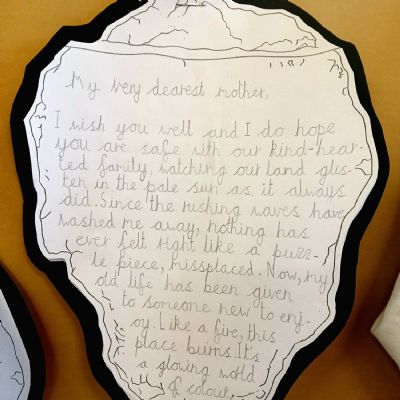 My Very dearest mother,
I wish you well and I do hope
you are safe with our kind-hear-
ted family, watching our land glis-
ten in the pale sun as it always
did. Since the rushing waves have
washed me away, nothing has
ever felt right like a puzz-
le piece, missplaced. Now, my
old life has been given
to someone new to enj-
oy. Like a fire, this
place burns. It's
a glowing world
of colour,